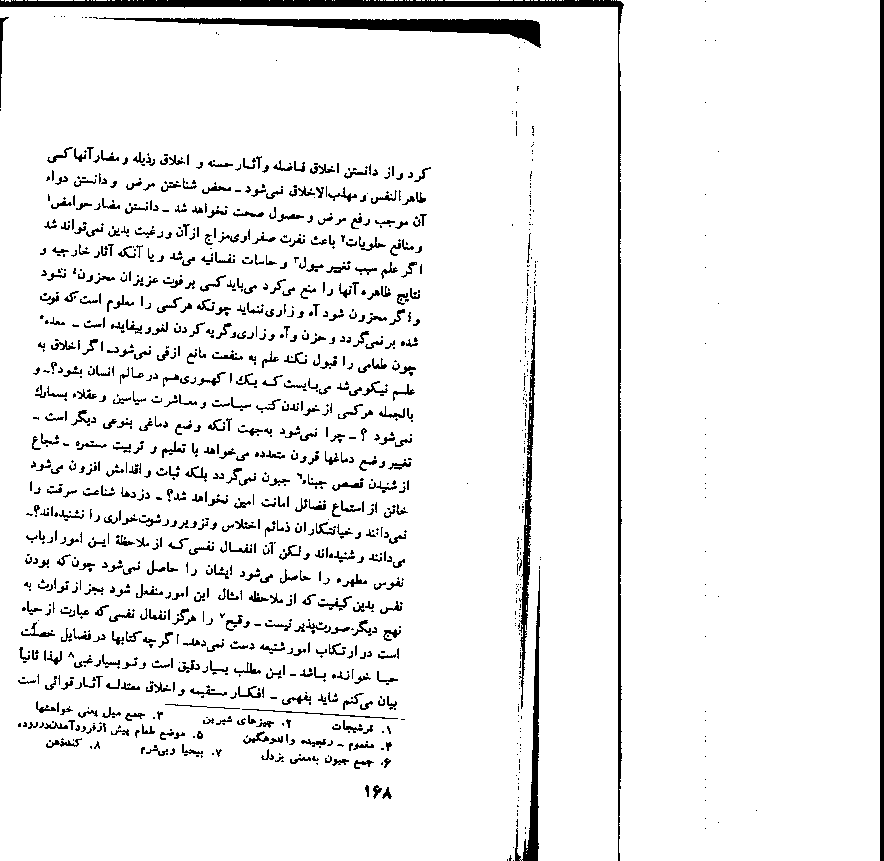 کرد و از دانستن اخلاق فاضله و آثار حسنه و اخلاق رذیله و مضار آنها کسی
طاهرالنفس و مهذب‌الاخلاق نمی‌شود ـ محض شناختن مرض و دانستن دواء
آن موجب رفع مرض و حصول صحت نخواهد شد ـ دانستن مضار حوامض۱
و منافع حلویات۲ باعث نفرت صفراوی‌مزاج از آن و رغبت بدین نمی‌تواند شد
اگر علم سبب تغییر میول۳ و حاسات نفسانیه می‌شد و یا آنکه آثار خارجیه و
نتایج ظاهره آنها را منع می‌کرد می‌باید کسی بر فوت عزیزان محزون۴ نشود
و اگر محزون شود آه و زاری ننماید چونکه هرکسی را معلوم است که فوت
شده بر نمی‌گردد و حزن و آه و زاری و گریه کردن لغو و بیفایده است ـ معده۵
چون طعامی را قبول نکند علم به منفعت مانع ازقی نمی‌شود ـ اگر اخلاق به
علم نیکو می‌شد می‌بایست که یک اکهوری هم در عالم انسان بشود؟ ـ و
بالجمله هرکسی از خواندن کتب سیاست و معاشرت سیاسین و عقلاء بسمارک
نمی‌شود ؟ ـ چرا نمی‌شود به‌جهت آنکه وضع دماغی بنوعی دیگر است ـ
تغییر وضع دماغها قرون متعدده می‌خواهد با تعلیم و تربیت مستمره ـ شجاع
از شنیدن قصص جبناء۶ جبون نمی‌گردد بلکه ثبات و اقدامش افزون می‌شود
خائن از استماع فضائل امانت امین نخواهد شد؟ ـ دزدها شناعت سرقت را
نمی‌دانند و خیانتکاران ذمائم اختلاس و تزویر و رشوت‌خواری را نشنیده‌اند؟ ـ
می‌دانند و شنیده‌اند ولکن آن انفعال نفسی که از ملاحظهٔ این امور ارباب
نفوس مطهره را حاصل می‌شود ایشان را حاصل نمی‌شود چون که بودن
نفس بدین کیفیت که از ملاحظه امثال این امور منفعل شود بجز از توارث به
نهج دیگر صورت‌پذیر نیست ـ وقیح۷ را هرگز انفعال نفسی که عبارت از حیاء
است در ارتکاب امور شنیعه دست نمی‌دهد ـ اگرچه کتابها در فضایل خصلت
حیا خوانده باشد ـ این مطلب بسیار دقیق است و تو بسیار غبی۸ لهذا ثانیاً
بیان می‌کنم شاید بفهمی ـ افکار مستقیمه و اخلاق معتدله آثار قوائی است
۱. ترشیجات ۲. چیزهای شیرین ۳. جمع میل یعنی خواهشها
۴. مغموم ـ رنجیده و اندوهگین ۵. موضع طعام پیش از فرود آمدن در روده
۶. جمع جبون به‌معنی بزدل ۷. بیحیا و بی‌شرم ۸. کندذهن
۱۶۸